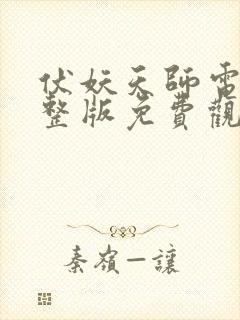 伏妖天師電
整版免費觀
秦嶺一讓